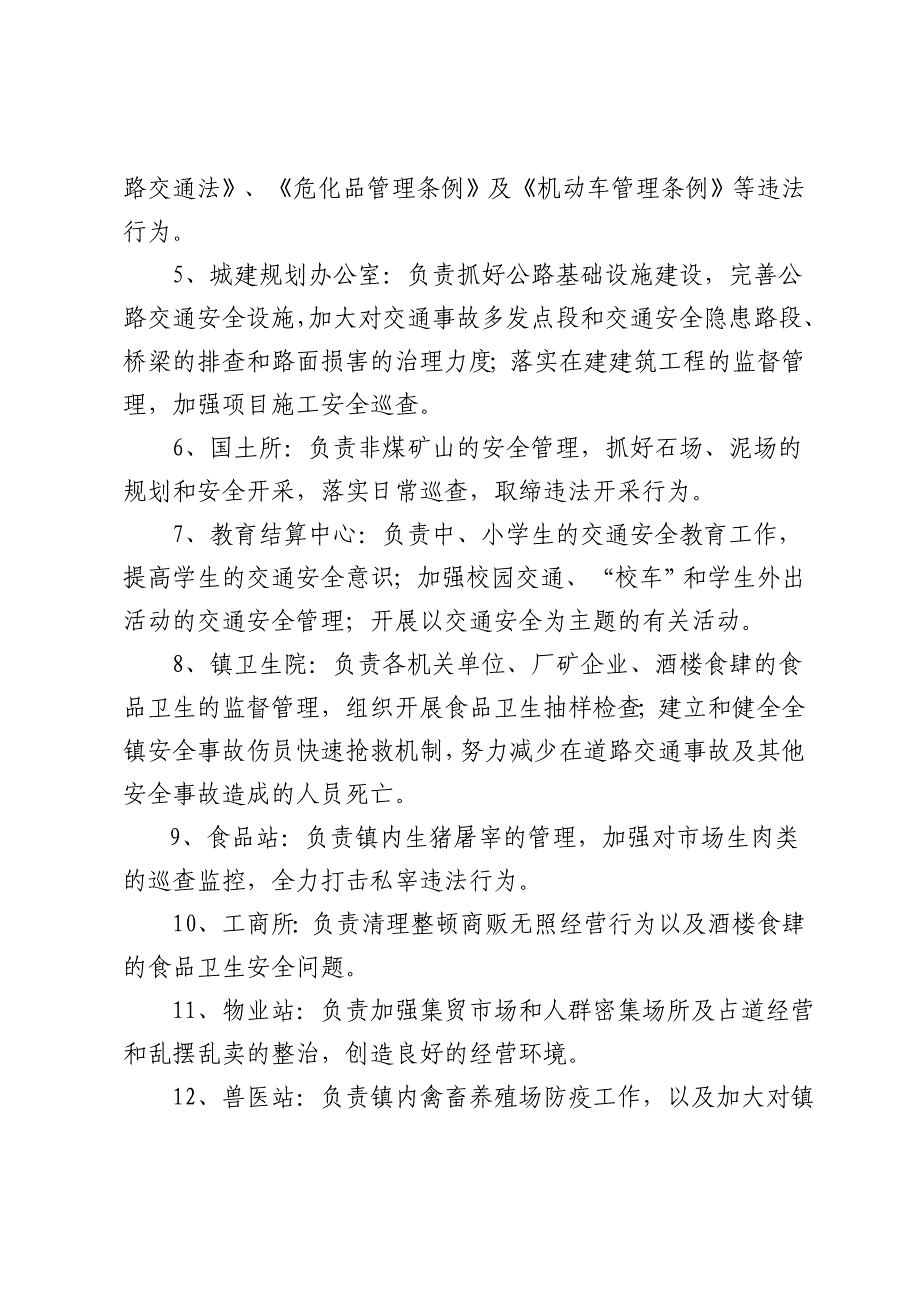 路交通法》、《危化品管理条例》及《机动车管理条例》等违法
行为。
5、城建规划办公室：负责抓好公路基础设施建设，完善公
路交通安全设施，加大对交通事故多发点段和交通安全隐患路段、
桥梁的排查和路面损害的治理力度；落实在建建筑工程的监督管
理，加强项目施工安全巡查。
6、国土所：负责非煤矿山的安全管理，抓好石场、泥场的
规划和安全开采，落实日常巡查，取缔违法开采行为。
7、教育结算中心：负责中、小学生的交通安全教育工作，
提高学生的交通安全意识；加强校园交通、“校车”和学生外出
活动的交通安全管理；开展以交通安全为主题的有关活动。
8、镇卫生院：负责各机关单位、厂矿企业、酒楼食肆的食
品卫生的监督管理，组织开展食品卫生抽样检查；建立和健全全
镇安全事故伤员快速抢救机制，努力减少在道路交通事故及其他
安全事故造成的人员死亡。
9、食品站：负责镇内生猪屠宰的管理，加强对市场生肉类
的巡查监控，全力打击私宰违法行为。
10、工商所：负责清理整顿商贩无照经营行为以及酒楼食肆
的食品卫生安全问题。
11、物业站：负责加强集贸市场和人群密集场所及占道经营
和乱摆乱卖的整治，创造良好的经营环境。
12、兽医站：负责镇内禽畜养殖场防疫工作，以及加大对镇